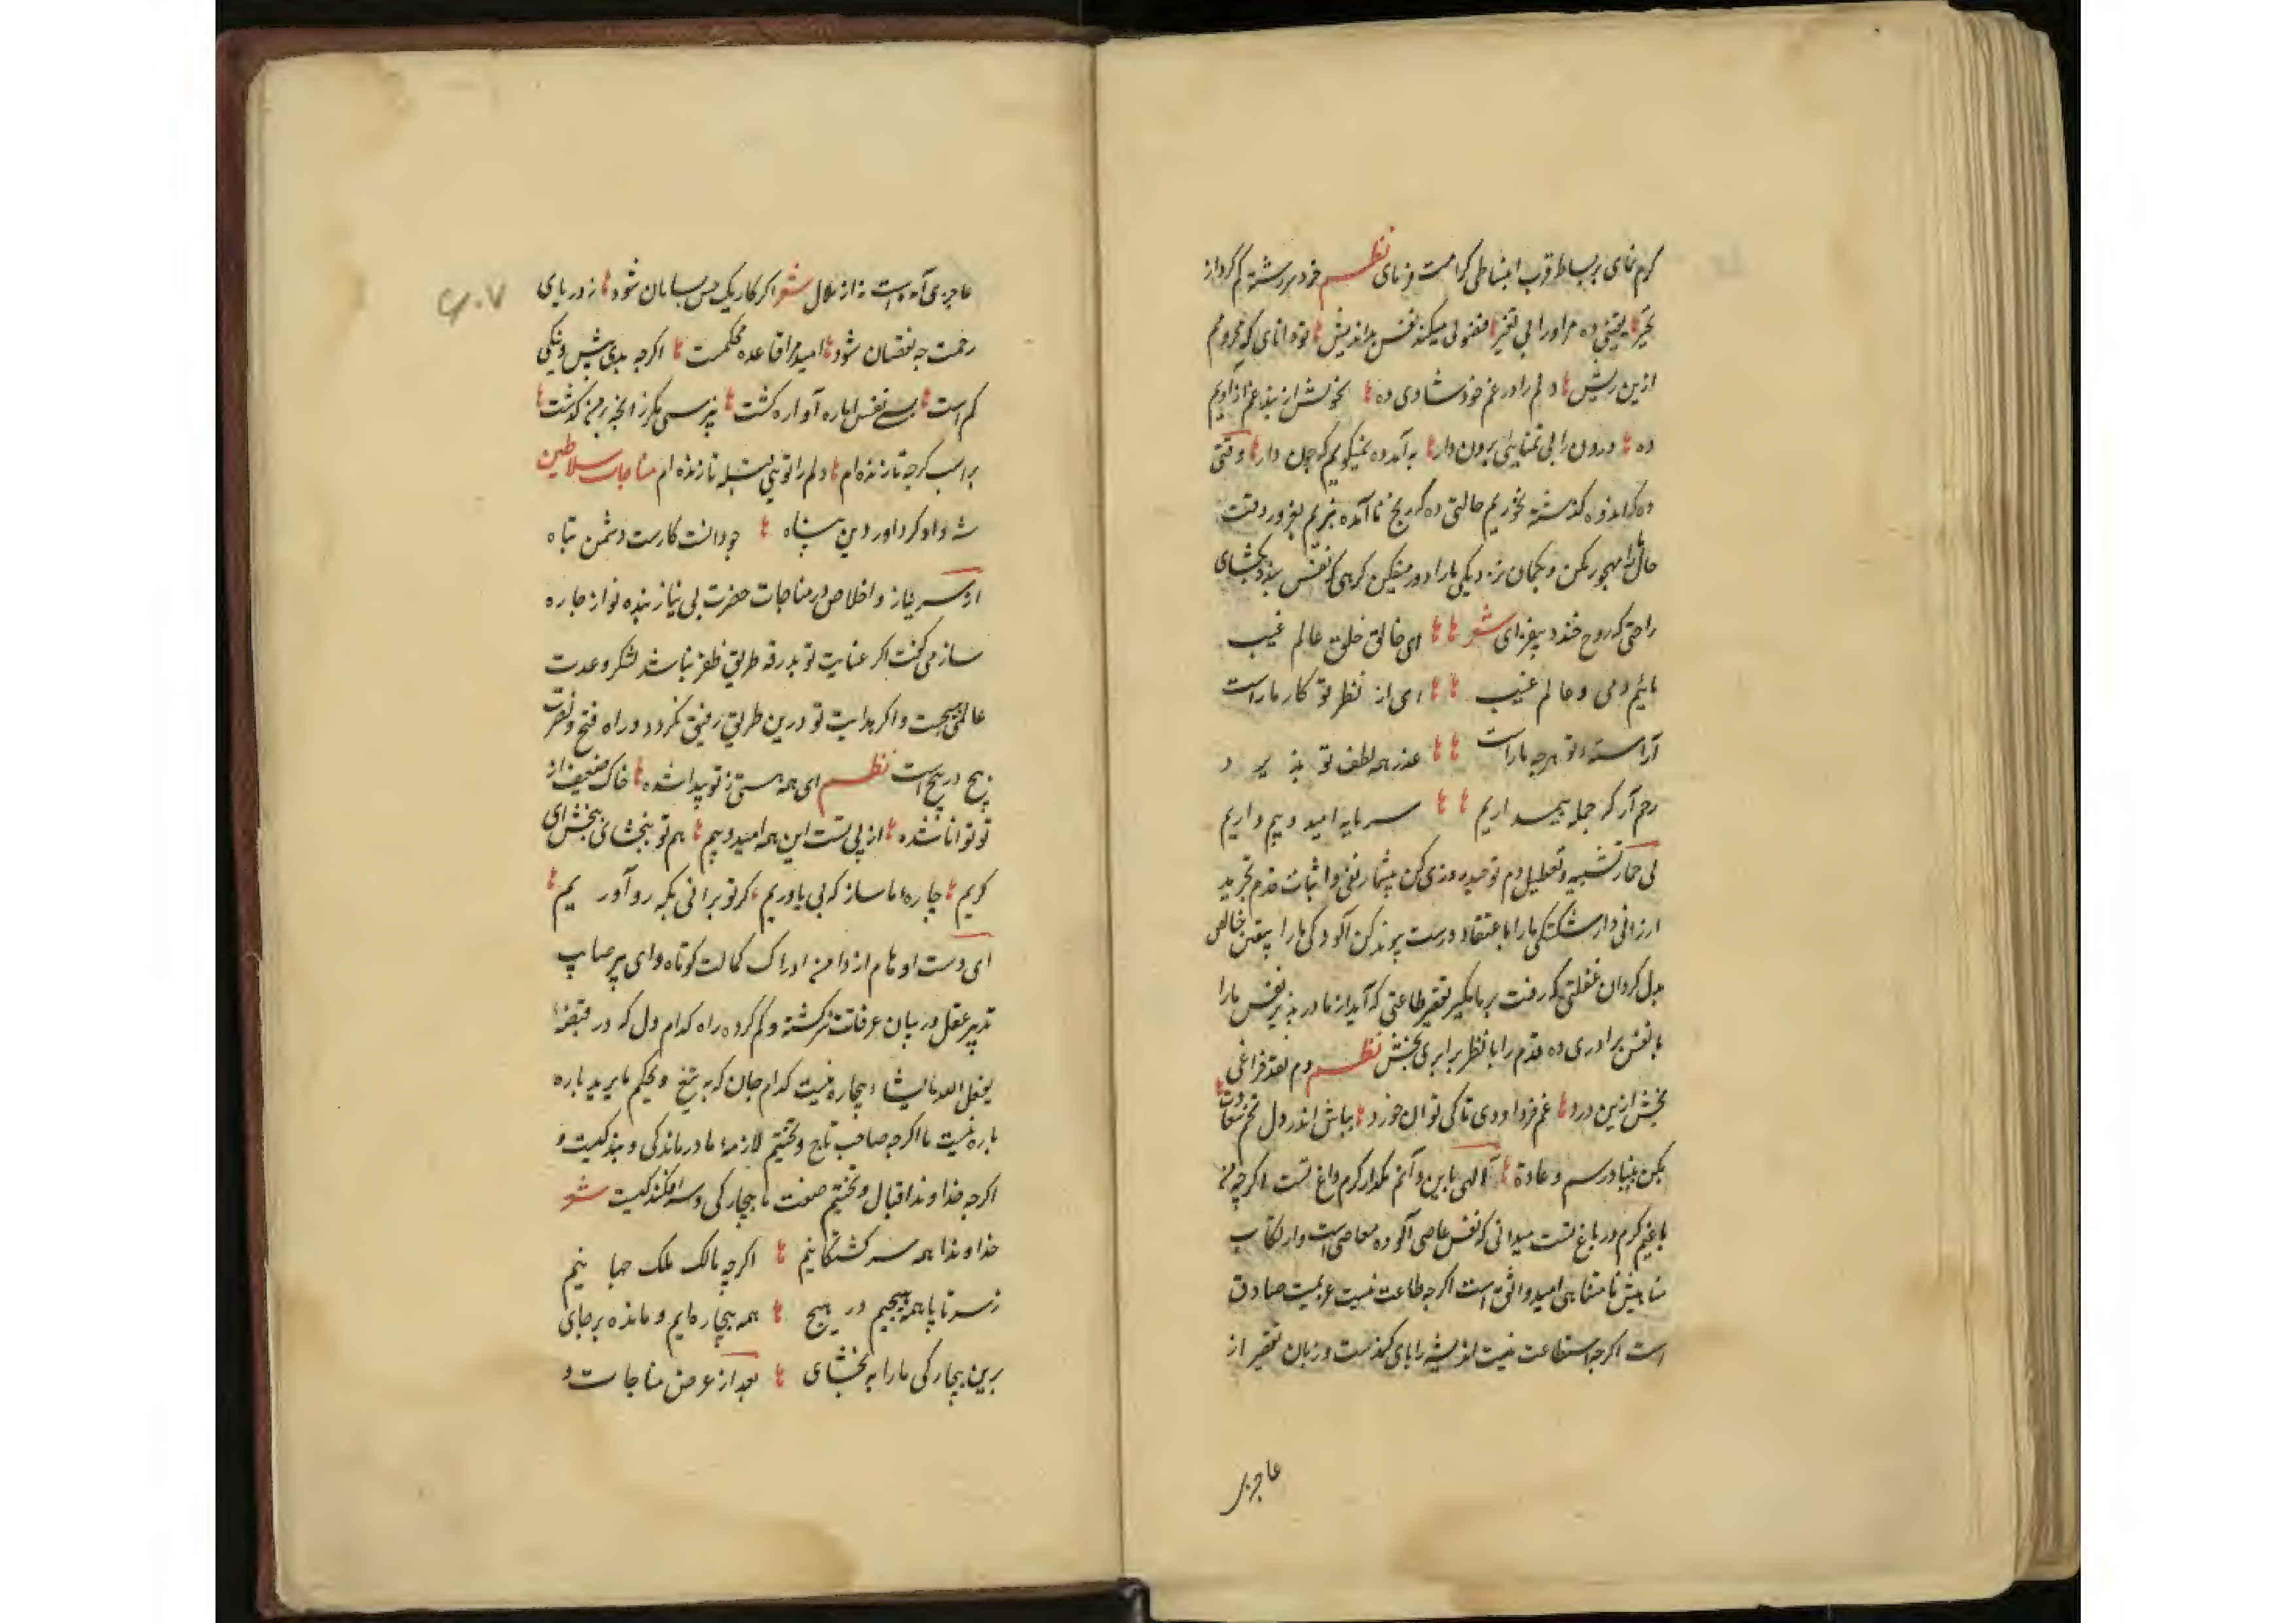 کرم نمای بر بساط قرب انبساطی کرامت فرمای نظم خرد سررشته گم کرد از
تحیر یقینی ده مرا ورا بی تغیر فضولی میکند نفس بداندیش تو دانای که محرومم
ازین ریش دلم را در غم خود شادی ده بخویش از بند غم آزادیم
ده درون را بی تمنایی برون دار به آمد وه نمیگویم که چون دار وقتی
ده که اندوه گذشته نخوریم حالتی ده که رنج ناآمده نبریم بغرور وقت
حال ما را مهجور مکن و بگمان نزدیکی ما را دور میفکن کرهی که نفس بندد بگشای
راحتی که روح خندد بیفزای شعر ای خالق خلق عالم غیب
مائیم دمی و عالم غیب ای از نظر تو کار ما راست
آراسته تو هر چه ما راست عذر همه لطف تو پذیرد
رحم آر که جمله بیم داریم سرمایه امید و بیم داریم
بی خار تشبیه و تعطیل دم توحید روزی کن بیشمار نفی و اثبات قدم تجرید
ارزانی دار شکستگی ما را با عتقاد درست پیوند کن آلودگی ما را بیقین خالص
بدل گردان غفلتی که رفت بر ما مگیر تقصیر طاعتی که آید از ما در پذیر نفس ما را
با نفس برادری ده قدم را با نظر برابری بخش نظم دم نقد فراغی
بخش ازین درد غم فردا و دی تا کی توان خورد بپاش اندر دل تخم سعادت
بکن بنیاد رسم و عادة الهی با این و آنم مگذار کرم داغ تست اکرچه نه
باغیم کرم در باغ تست میدانی که نفس عاصی آلوده معاصی است و ارتکاب
مناهیش نامتناهی امید واثق است اکرچه طاعت نیست عزیمت صادق
است اکرچه استطاعت نیست اندیشه را پای کندست و زبان تقریر از
عاجزی
۶۰۷
عاجزی آمده است نه از ملال شعر اکر کار یک خس بسامان شود ز دریای
رحمت چه نقصان شود امید مرا قاعده محکمست اکرچه بدی بیش و نیکی
کم است بسی نفس اماره آواره کشت نپرسی مگر زانچه بر من گذشت
براسب کرچه تازنده ام دلم را تویی قبله تا زنده ام مناجات سلاطین
شه دادکر داور دین پناه چو دانست کارست دشمن تباه
از سر نیاز و اخلاص در مناجات حضرت بی نیاز بنده نواز چاره
ساز می کفت اکر عنایت تو بدرقه طریق ظفر نباشد لشکر و عدت
عالمی هیچست و اکر هدایت تو درین طریق رفیق نکردد راه فتح و نصرت
پیچ در پیچ است نظم ای همه هستی ز تو پیدا شده خاک ضعیف از
تو توانا شده از پی تست این همه امید و بیم هم تو ببخشای و ببخش ای
کریم چاره ما ساز که بی یاوریم کر تو برانی بکه رو آوریم
ای دست اوهام از دامن ادراک کمالت کوتاه و ای پیر صاحب
تدبیر عقل در بیان عرفانت سرکشته و کم کرده راه کدام دل که در قبضه
یفعل الله ما یشاء بیچاره نیست کدام جان که به تیغ و یحکم ما یرید پاره
پاره نیست ما اکرچه صاحب تاج و تختیم لازمه ما درماندگی و بندکیست و
اکرچه خداوند اقبال و بختیم صفت ما بیچارکی و سرافکندکیست شعر
خداوندا همه سرکشتکانیم اکرچه مالک ملک جهانیم
ز سر تا پا همه هیچیم در هیچ همه بیچاره ایم و مانده بر جای
برین بیچارکی ما را ببخشای بعد از عرض مناجات و